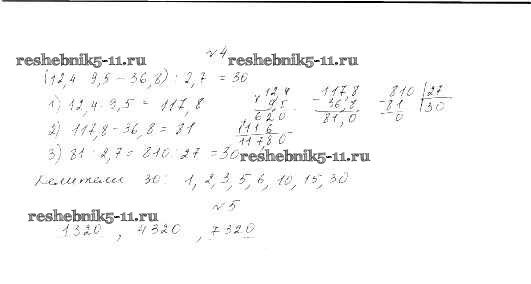 №4
reshebnik5-11.ru reshebnik5-11.ru
(12,4 · 9,5 - 36,8) : 2,7 = 30
1) 12,4 · 9,5 = 117,8
2) 117,8 - 36,8 = 81
3) 81 : 2,7 = 810 : 27 = 30
12,4
9,5
620
1116
117,80
117,8
- 36,8
81,0
810 27
- 81 30
0
reshebnik5-11.ru
Делители 30: 1, 2, 3, 5, 6, 10, 15, 30
№5
reshebnik5-11.ru
1320, 4320, 7320